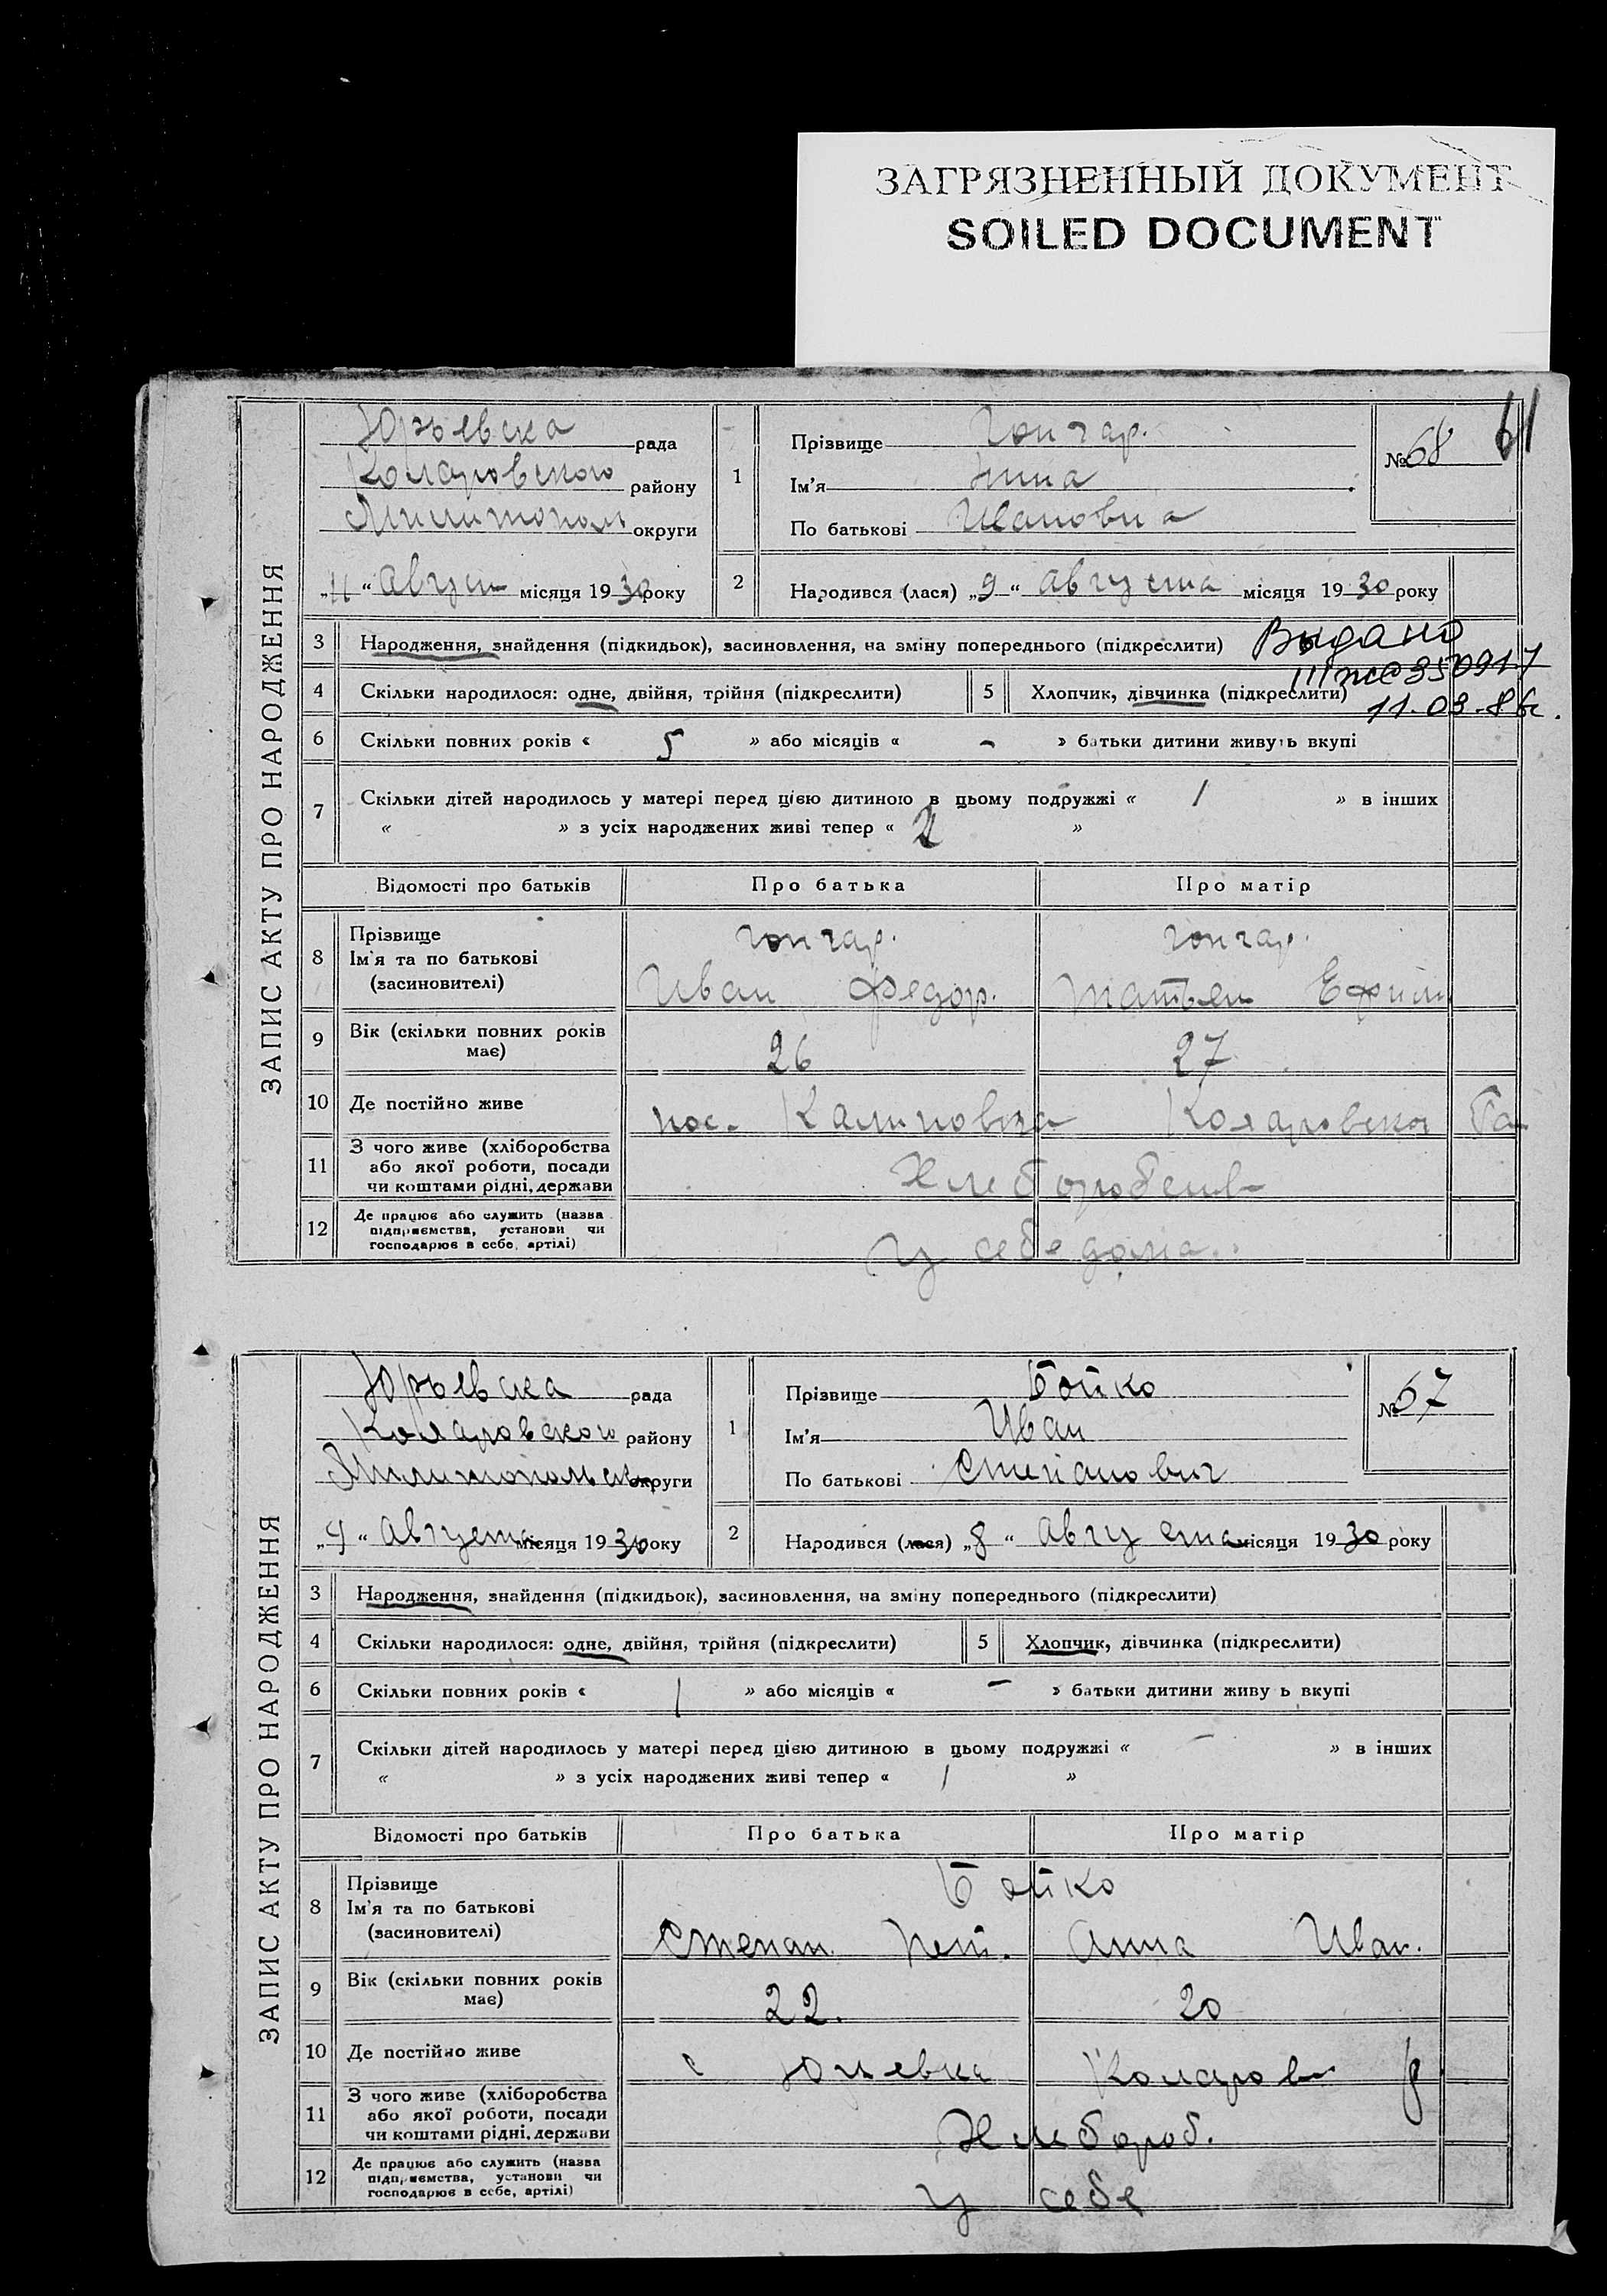 ЗАГРЯЗНЕННЫЙ ДОКУМЕНТ
SOILED DOCUMENT
61
ЗАПИС АКТУ ПРО НАРОДЖЕННЯ
Юрьевска рада
Коларовского району
округи
„11“ август місяця 1930 року
1
Прізвище Гончар.
Ім'я Нина
По батькові Ивановна
№ 68
2 Народився (лася) „9“ августа місяця 1930 року
3 Народження, знайдення (підкидьок), засиновлення, на зміну попереднього (підкреслити)
Выдано
350917
11.03.86г.
4 Скільки народилося: одне, двійня, трійня (підкреслити)
5 Хлопчик, дівчинка (підкреслити)
6 Скільки повних років « 5 » або місяців « - » батьки дитини живуть вкупі
7 Скільки дітей народилось у матері перед цією дитиною в цьому подружжі « 1 » в інших
« » з усіх народжених живі тепер « 2 »
Відомості про батьків Про батька Про матір
8 Прізвище
Ім'я та по батькові
(засиновителі)
гончар. гончар.
Иван Федор. Татьян Ефим
9 Вік (скільки повних років має)
26 27
10 Де постійно живе
пос. Калиновка Коларовска
11 З чого живе (хліборобства
або якої роботи, посади
чи коштами рідні, держави
Хлеборобств
12 Де працює або служить (назва
підприємства, установи чи
господарює в себе, артілі)
у себе дома.
ЗАПИС АКТУ ПРО НАРОДЖЕННЯ
Юрьевска рада
Коларовского району
округи
„9“ августа місяця 1930 року
1
Прізвище Бойко
Ім'я Иван
По батькові Степанович
№ 67
2 Народився (лася) „8“ августа місяця 1930 року
3 Народження, знайдення (підкидьок), засиновлення, на зміну попереднього (підкреслити)
4 Скільки народилося: одне, двійня, трійня (підкреслити)
5 Хлопчик, дівчинка (підкреслити)
6 Скільки повних років « 1 » або місяців « - » батьки дитини живу ь вкупі
7 Скільки дітей народилось у матері перед цією дитиною в цьому подружжі « - » в інших
« » з усіх народжених живі тепер « 1 »
Відомості про батьків Про батька Про матір
8 Прізвище
Ім'я та по батькові
(засиновителі)
Бойко
Степан Пет. Анна Иван.
9 Вік (скільки повних років має)
22. 20
10 Де постійно живе
с Юрьевка Коларов р
11 З чого живе (хліборобства
або якої роботи, посади
чи коштами рідні, держави
Хлебороб.
12 Де працює або служить (назва
підприємства, установи чи
господарює в себе, артілі)
у себе